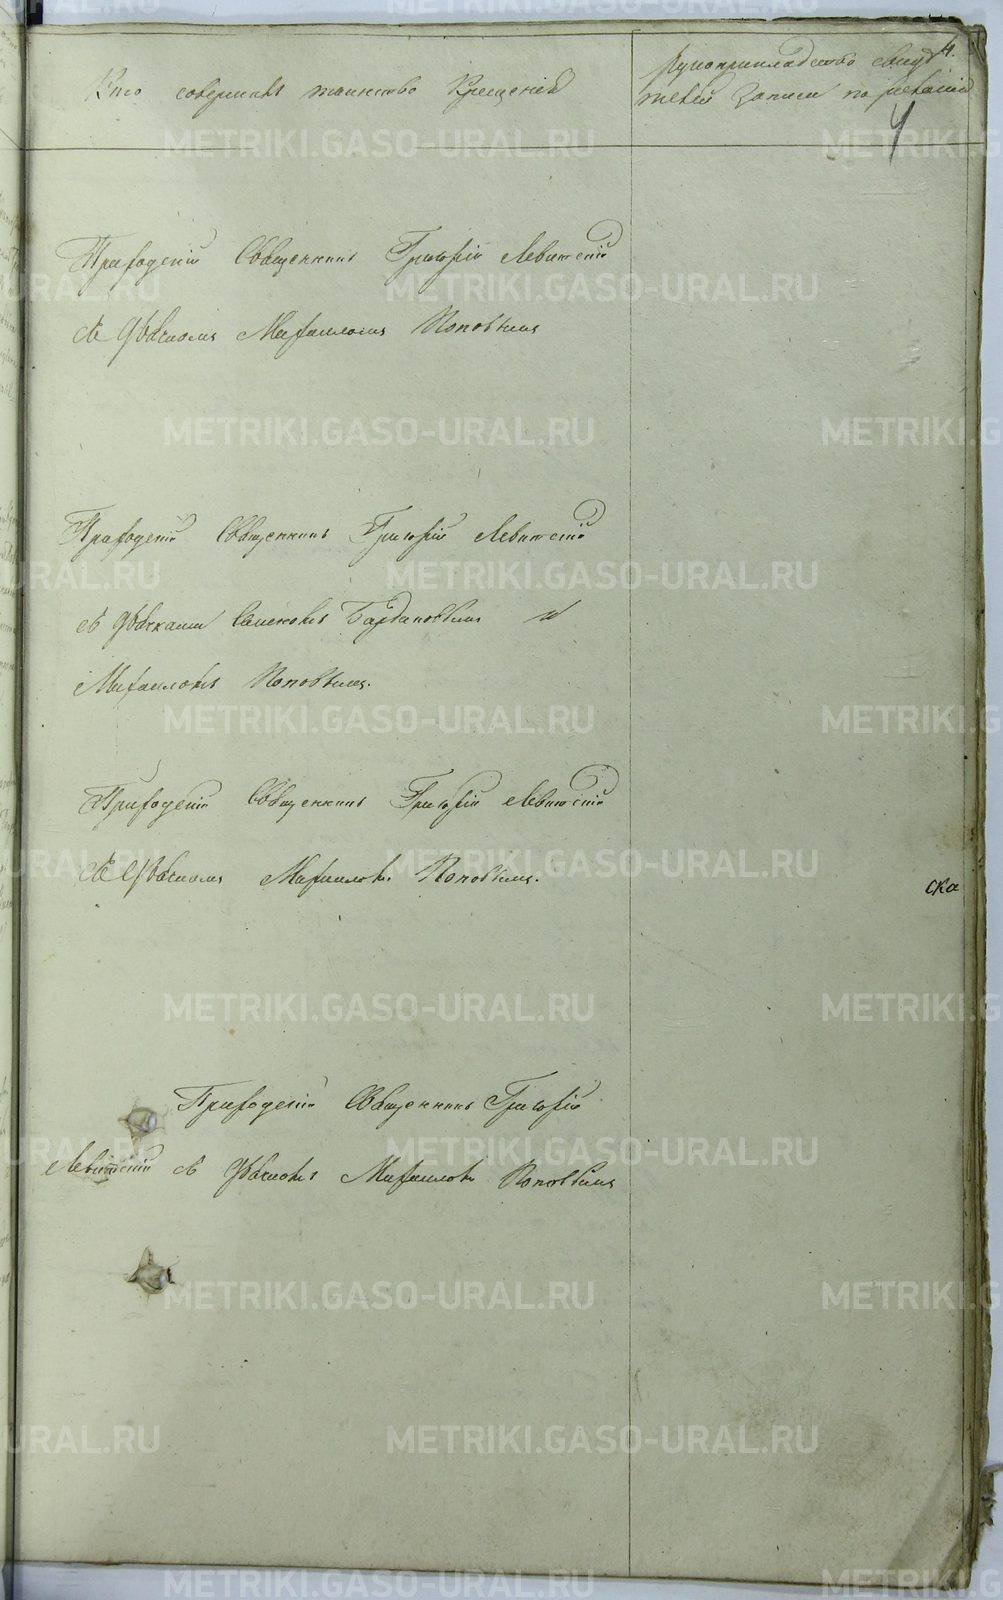 Кто совершалъ таинство Крещенія
Рукоприкладство свидѣ
телей записи по желанію
4.
4
Приходскій Священникъ Григорій Левитскій
съ Дьячкомъ Михаиломъ Поповымъ
Приходскій Священникъ Григорій Левитскій
съ Дьячками Семеномъ и
Михаиломъ Поповымъ.
Приходскій Священникъ Григорій Левитскій
съ Дьячкомъ Михаиломъ Поповымъ.
ска
Приходскій Священникъ Григорій
Левитскій съ Дьячкомъ Михаиломъ Поповымъ
METRIKI.GASO-URAL.RU